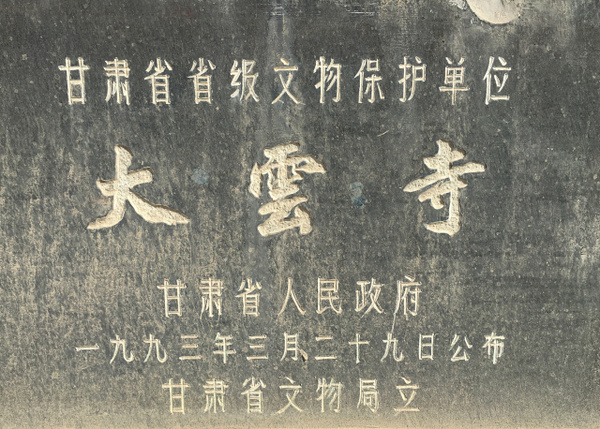 甘肃省省级文物保护单位
大雲寺
甘肃省人民政府
一九九三年三月二十九日公布
甘肃省文物局立